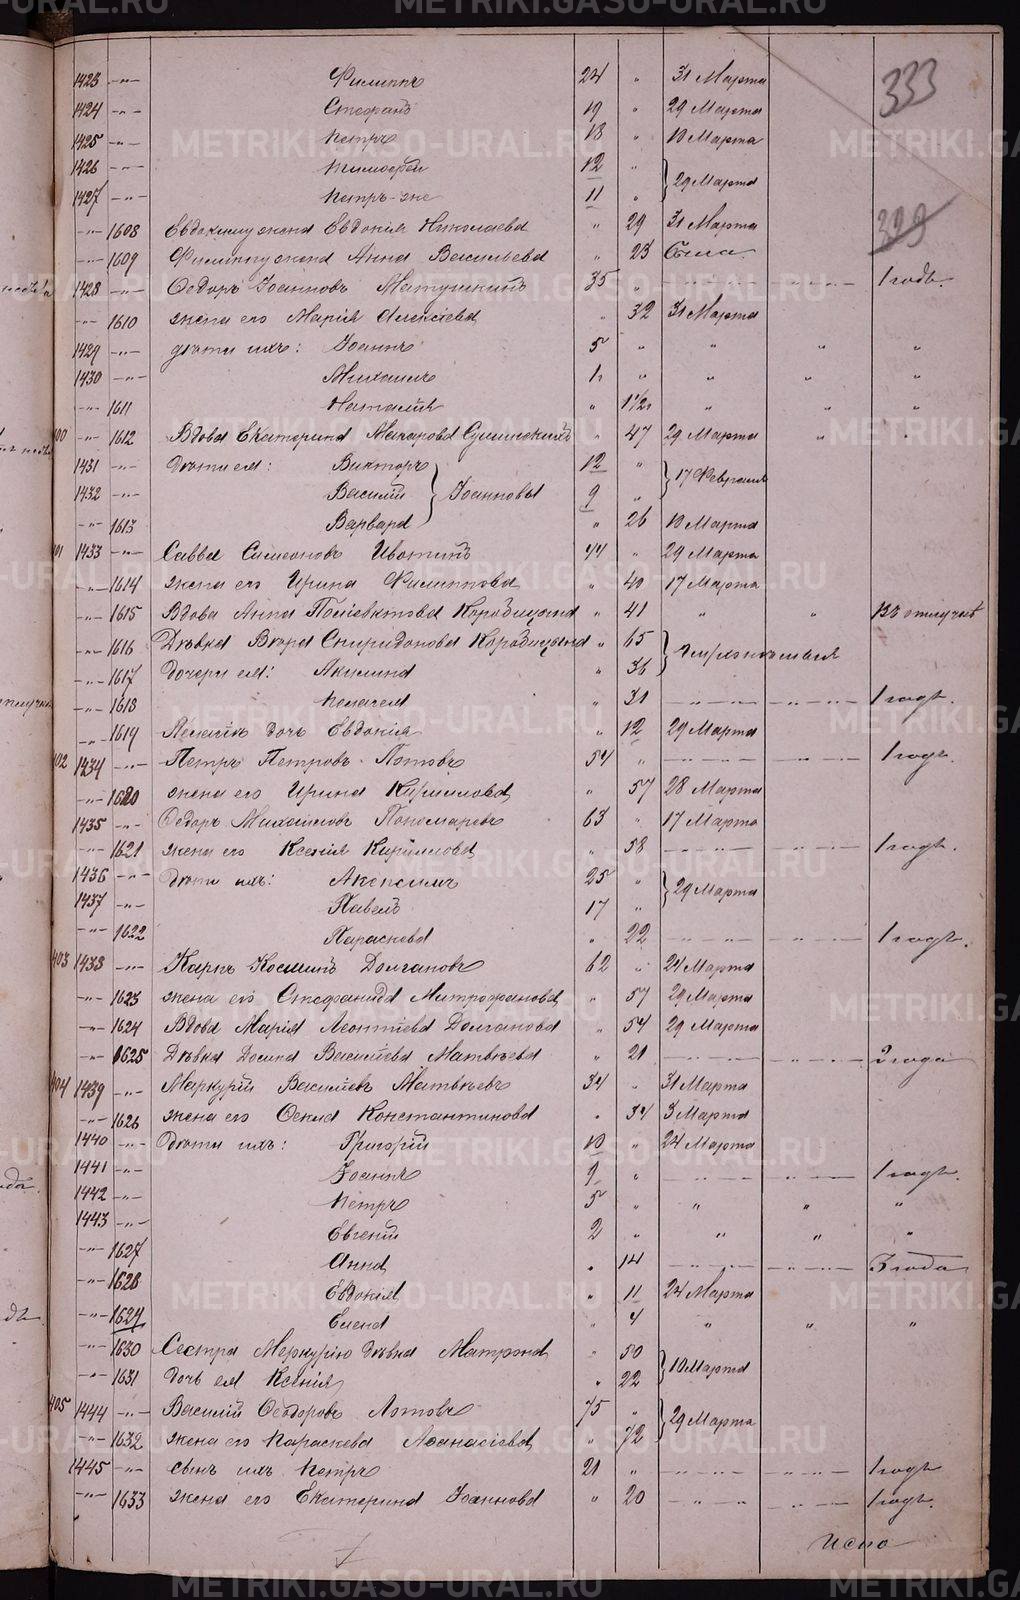 METRIKI.GASO-URAL.RU
333
1423 -„- Филиппъ 24 „ 31 Марта
1424 -„- Стефанъ 19 „ 29 Марта
1425 -„- Петръ 18 „ 10 Марта
1426 -„- Тимофей 12 „ } 29 Марта
1427 -„- Петръ-же 11 „
399
-„- 1608 Евдокиму жена Евдокія Николаева „ 29 31 Марта
-„- 1609 Филиппу жена Анна Васильева „ 23 Была
1428 -„- Ѳеодоръ Іоанновъ Матушкинъ 35 „ -„- -„- 1 годъ.
-„- 1610 жена его Марія Алексіева „ 32 31 Марта
1429 -„- дѣти ихъ: Іоаннъ 5 „ „ „ „
1430 -„- Михаилъ 1 „ „ „ „
-„- 1611 Наталія „ 1 1/2 „ „ „
-„- 1612 Вдова Екатерина Макарова „ 47 29 Марта „ „
1431 -„- Дѣти ея: Викторъ 12 „ } 17 Февраля
1432 -„- Василій } Іоанновы 9 „
-„- 1613 Варвара „ 26 10 Марта
401 1433 -„- Савва Симеоновъ Ивотинъ 44 „ 29 Марта
-„- 1614 жена его Ирина Филиппова „ 40 17 Марта
-„- 1615 Вдова Анна Поліевктова Коробицына „ 41 „ „ Въ отлучкѣ
-„- 1616 Дѣвка Вѣра Спиридонова Коробицына „ 65 }
-„- 1617 дочери ея: Акилина „ 36
-„- 1618 Пелагея „ 31 -„- -„- 1 годъ.
-„- 1619 дочь Евдокія „ 12 29 Марта
402 1434 -„- Петръ Петровъ Лотовъ 54 „ -„- -„- 1 годъ.
-„- 1620 жена его Ирина Кириллова „ 57 28 Марта
1435 -„- Ѳеодоръ Михаиловъ Пономаревъ 63 „ 17 Марта
-„- 1621 жена его Ксенія Кириллова „ 58 -„- -„- 1 годъ.
1436 -„- дѣти ихъ: Акепсимъ 25 „ } 29 Марта
1437 -„- Павелъ 17 „
-„- 1622 Параскева „ 22 -„- -„- 1 годъ.
403 1438 -„- Карпъ Косминъ Долгановъ 62 „ 24 Марта
-„- 1623 жена его Стефанида Митрофанова „ 57 29 Марта
-„- 1624 Вдова Марія Леонтіева Долганова „ 54 29 Марта
-„- 1625 Дѣвка Домна Васильева Матвѣева „ 21 -„- -„- 2 года
404 1439 -„- Меркурій Василіевъ Матвѣевъ 34 „ 31 Марта
-„- 1626 жена его Ѳекла Константинова „ 34 3 Марта
1440 -„- Дѣти ихъ: Григорій 10 „ 24 Марта
1441 -„- Іоаннъ 9 „ -„- -„- 1 годъ.
1442 -„- Петръ 5 „ „ „ „
1443 -„- Евгеній 2 „ „ „ „
-„- 1627 Анна „ 14 -„- -„- 3 года
-„- 1628 Евдокія „ 11 24 Марта
-„- 1629 Елена „ 4 „ „ „
-„- 1630 Сестра Меркурію дѣвка Матрона „ 50 } 10 Марта
-„- 1631 дочь ея Ксенія „ 22
405 1444 -„- Василій Ѳеодоровъ Лотовъ 75 „ } 29 Марта
-„- 1632 жена его Параскева Аѳанасіева „ 72
1445 -„- сынъ ихъ Петръ 21 „ -„- -„- 1 годъ
-„- 1633 жена его Екатерина Іоаннова „ 20 -„- -„- 1 годъ.